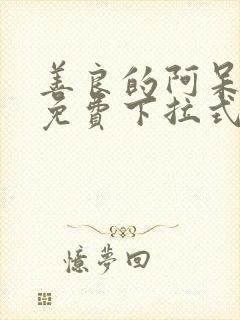 善良的阿呆
免費下拉式
憶夢回